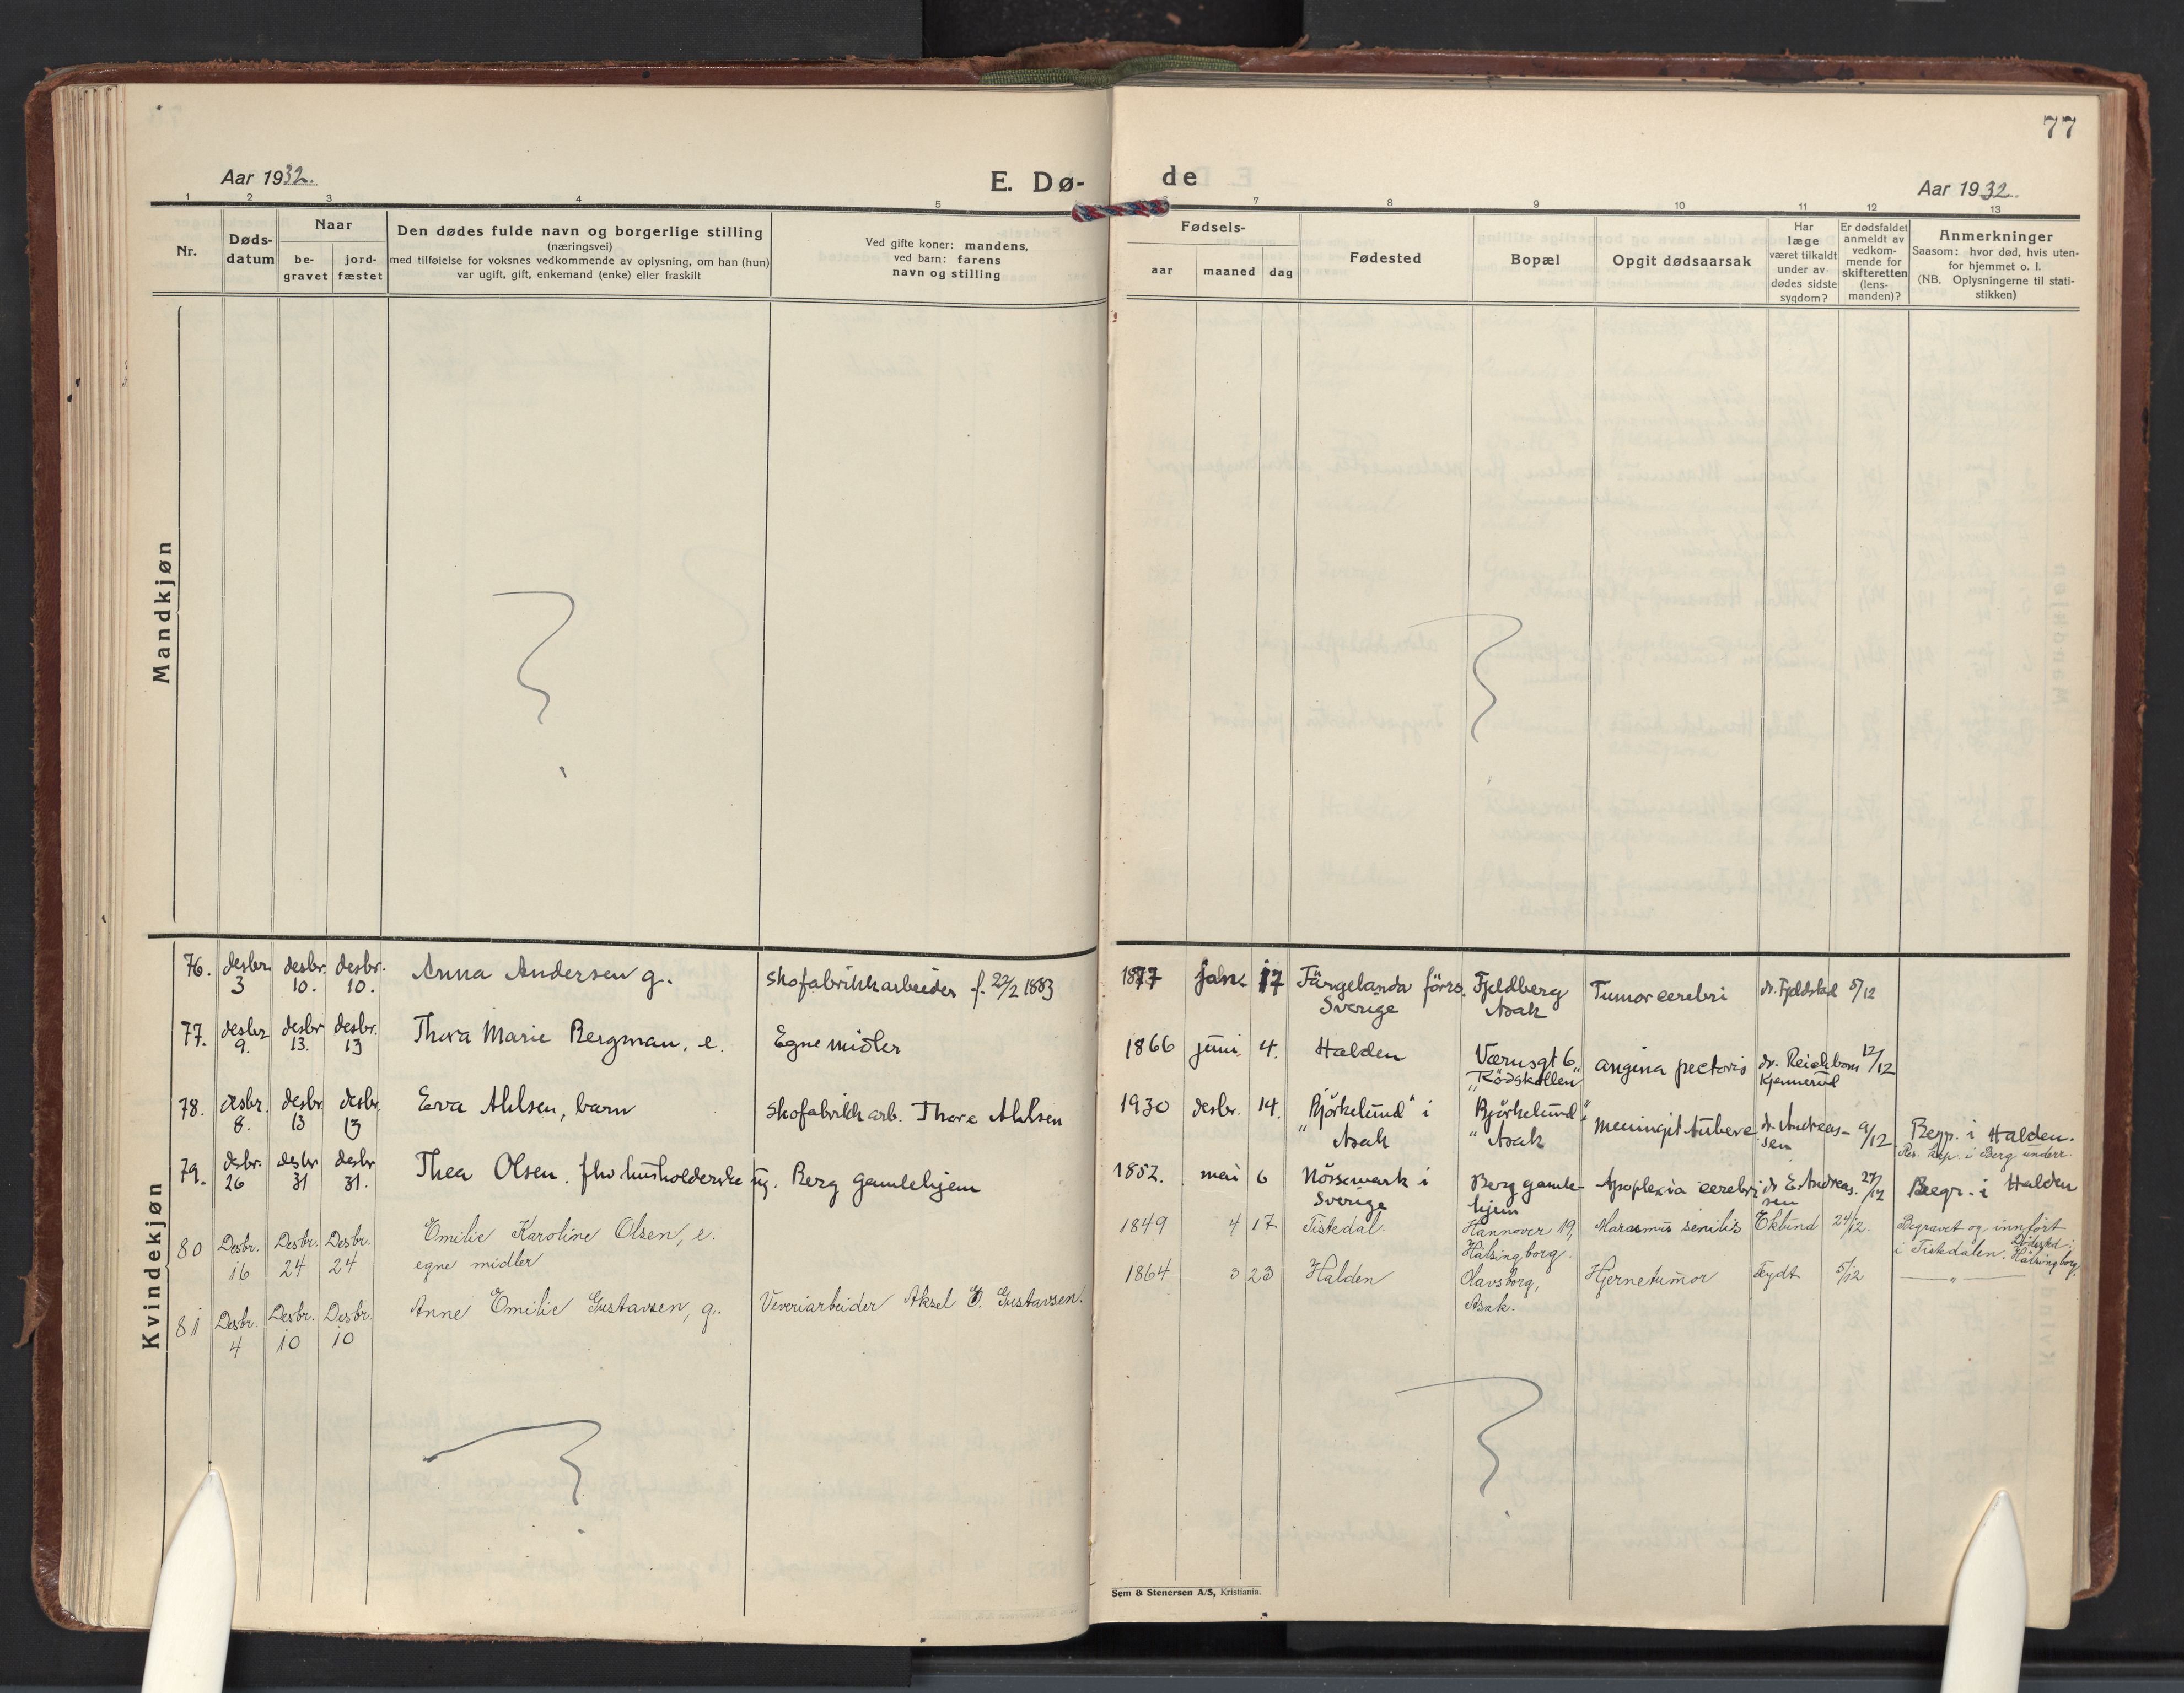 77
Aar 1932.
E. Dø-
de
Aar 1932
1 2 3 4 5
7 8 9 10 11 12 13
Nr.
Døds-
datum
Naar
be-
gravet
jord-
fæstet
Den dødes fulde navn og borgerlige stilling
(næringsvei)
med tilføielse for voksnes vedkommende av oplysning, om han (hun)
var ugift, gift, enkemand (enke) eller fraskilt
Ved gifte koner: mandens,
ved barn: farens
navn og stilling
Fødsels-
aar maaned dag
Fødested
Bopæl
Opgit dødsaarsak
Har
læge
været tilkaldt
under av-
dødes sidste
sygdom?
Er dødsfaldet
anmeldt av
vedkom-
mende for
skifteretten
(lens-
manden)?
Anmerkninger
Saasom: hvor død, hvis uten-
for hjemmet o. l.
(NB. Oplysningerne til stati-
stikken)
Mandkjøn
Kvindekjøn
76. desbr. desbr. desbr. Anna Andersen g. skofabrikkarbeider f. 22/2 1883 1877 jan. 17 Färgelanda förs. Fjeldberg Tumor cerebri dr. Fjeldstad 5/12
3 10. 10. Sverige Asak
77. desbr desbr desbr. Thora Marie Bergman, e. Egne midler 1866 juni 4. Halden Værnsgt 6 angina pectoris dr. Reichborn 12/12
9. 13. 13 "Rödskollen" Kjennerud
78. desbr. desbr desbr. Eva Ahlsen, barn skofabrikk arb. Thore Ahlsen 1930 desbr. 14. "Björkelund" i "Björkelund" meningit tuberc dr. Andreas- 9/12 Begr. i Halden.
8. 13 13 Asak Asak sen i Berg underr.
79. desbr. desbr desbr Thea Olsen. fhv husholderske ug. Berg gamlehjem 1852. mai 6 Nössemark i Berg gamle- Apoplexia cerebri dr E. Andreas. 27/12 Begr. i Halden
26 31 31. Sverige hjem sen
80 Desbr. Desbr. Desbr. Emilie Karoline Olsen, e. 1849 4 17 Tistedal. Hannover 19, Marasmus senilis Eklund 24/12. Begravet og innført
16 24 24 egne midler Hälsingborg. i Tistedalen. Dødssted: Hälsingborg.
81 Desbr. Desbr. Desbr. Anne Emilie Gustavsen, g. Veveriarbeider Aksel E. Gustavsen. 1864 3 23 Halden Olavsborg, Hjernetumor Feydt 5/12 — " —
4 10 10 Asak.
Sem & Stenersen A/S, Kristiania.